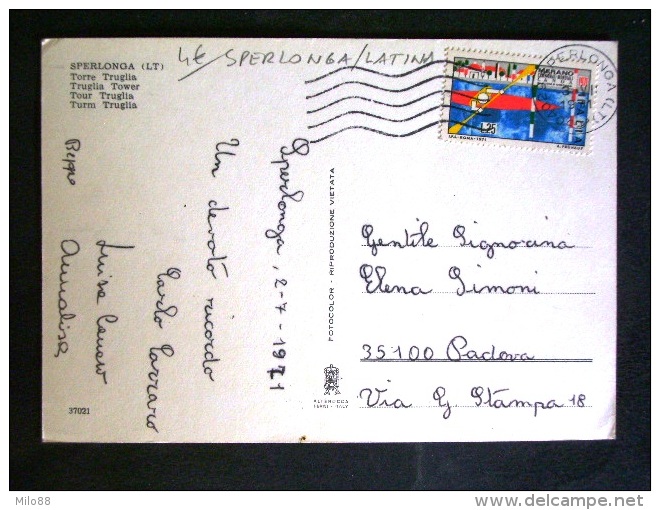 SPERLONGA (LT)
Torre Truglia
Truglia Tower
Tour Truglia
Turm Truglia
4€ / SPERLONGA / LATINA
MERANO
L.25
I.P.S.-ROMA-1971
SPERLONGA (LT)
Sperlonga, 2-7-1971
Un devoto ricordo
Carlo Carraro
Luisa
Annalisa
Beppe
37021
FOTOCOLOR - RIPRODUZIONE VIETATA
Gentile Signorina
Elena Simoni
35100 Padova
Via G Stampa 18
Milo88
delcampe.net